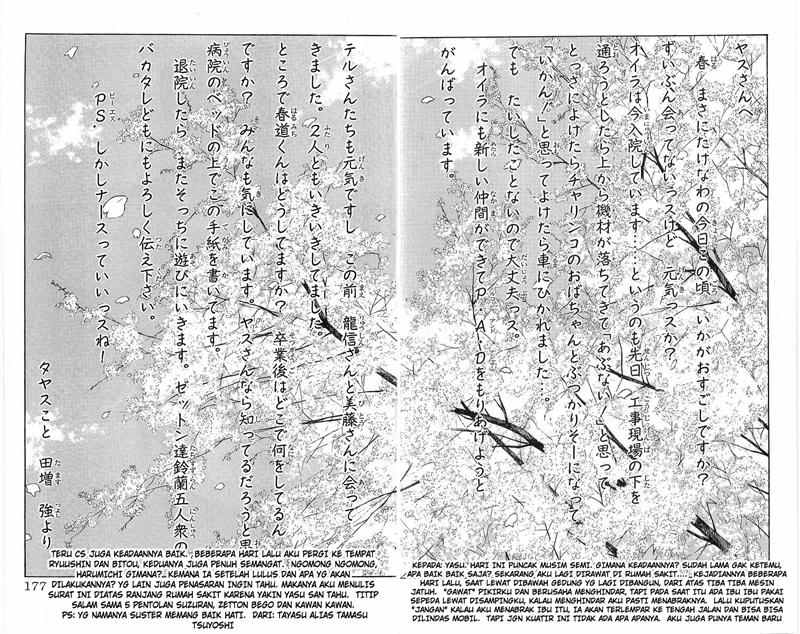 ヤスさんへ
春 まさにたけなわの今日この頃 いかがおすごしですか?
ずいぶん会ってないっスけど 元気っスか?
オイラは今入院しています……というのも先日 工事現場の下を
通ろうとしたら上から機材が落ちてきて「あぶない!」と思って
とっさによけたらチャリンコのおばちゃんとぶつかりそーになって、
「いかん!」と思ってよけたら車にひかれました…。
でも たいしたことないので大丈夫っス。
オイラにも新しい仲間ができてP.A.Dをもりあげようと
がんばっています。
テルさんたちも元気ですし この前 龍信さんと美藤さんに会って
きました。2人ともいきいきしてました。
ところで春道くんはどうしてますか? 卒業後はどこで何をしてるん
ですか? みんなも気にしています。ヤスさんなら知ってるだろうと思
病院のベッドの上でこの手紙を書いてます。
退院したら またそっちに遊びにいきます。ゼットン達鈴蘭五人衆の
バカタレどもにもよろしく伝え下さい。
PS. しかしナースっていいっスね!
タヤスこと 田増 強より
KEPADA: YASU. HARI INI PUNCAK MUSIM SEMI. GIMANA KEADAANNYA? SUDAH LAMA GAK KETEMU,
APA BAIK BAIK SAJA? SEKARANG AKU LAGI DIRAWAT DI RUMAH SAKIT..... KEJADIANNYA BEBERAPA
HARI LALU, SAAT LEWAT DIBAWAH GEDUNG YG LAGI DIBANGUN, DARI ATAS TIBA TIBA MESIN
JATUH. "GAWAT" PIKIRKU DAN BERUSAHA MENGHINDAR, TAPI PADA SAAT ITU ADA IBU IBU PAKAI
SEPEDA LEWAT DISAMPINGKU, KALAU MENGHINDAR AKU PASTI MENABRAKNYA. LALU KUPUTUSKAN
"JANGAN" KALAU AKU MENABRAK IBU ITU, IA AKAN TERLEMPAR KE TENGAH JALAN DAN BISA BISA
DILINDAS MOBIL. TAPI JGN KUATIR INI TIDAK ADA APA APANYA. AKU JUGA PUNYA TEMAN BARU
TERU CS JUGA KEADAANNYA BAIK. , BEBERAPA HARI LALU AKU PERGI KE TEMPAT
RYUUSHIN DAN BITOU, KEDUANYA JUGA PENUH SEMANGAT. NGOMONG NGOMONG,
HARUMICHI GIMANA?. KEMANA IA SETELAH LULUS DAN APA YG AKAN
DILAKUKANNYA? YG LAIN JUGA PENASARAN INGIN TAHU. MAKANYA AKU MENULIS
SURAT INI DIATAS RANJANG RUMAH SAKIT KARENA YAKIN YASU SAN TAHU. TITIP
SALAM SAMA 5 PENTOLAN SUZURAN, ZETTON BEGO DAN KAWAN KAWAN.
PS: YG NAMANYA SUSTER MEMANG BAIK HATI. DARI: TAYASU ALIAS TAMASU
TSUYOSHI
177